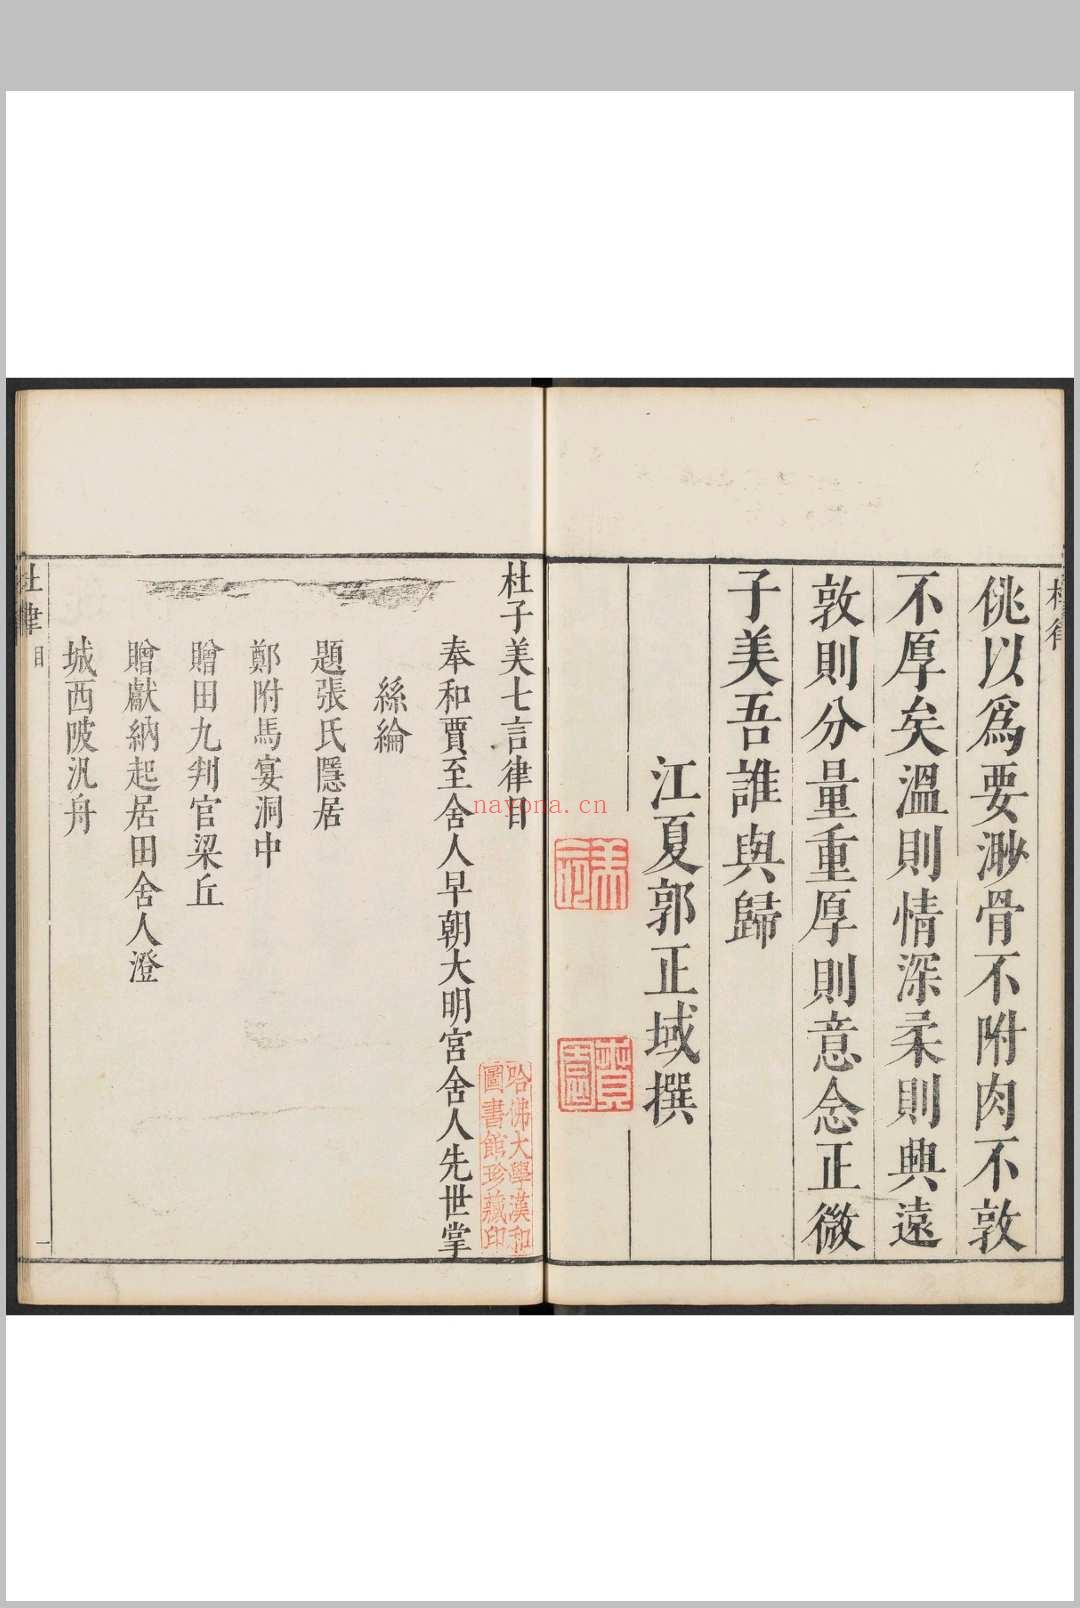 佻以爲要渺骨不附肉不敦
不厚矣溫則情深柔則興遠
敦則分量重厚則意念正微
子美吾誰與歸
江夏郭正域撰
杜子美七言律目
奉和賈至舍人早朝大明宮舍人先世掌
絲綸
題張氏隱居
鄭附馬宴洞中
贈田九判官梁丘
贈獻納起居田舍人澄
城西陂汎舟
杜律
目
一
哈佛大學漢和
圖書館珍藏印
nayona.cn